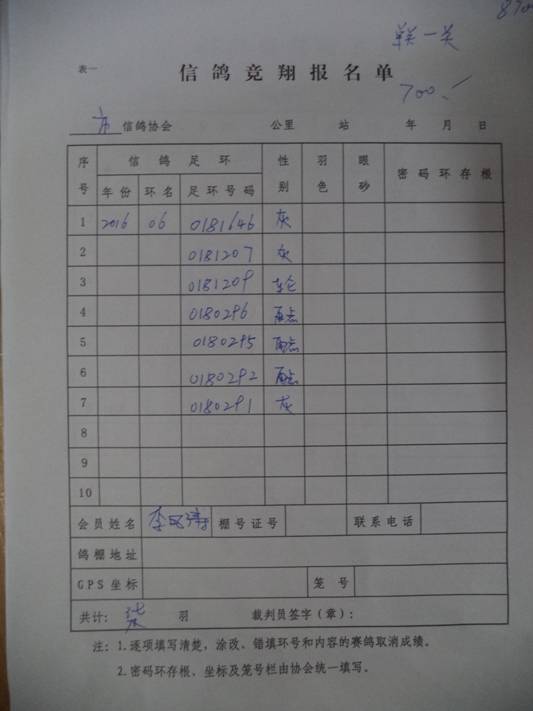 870
关一关
700.-
表一
信鸽竞翔报名单
市 信鸽协会 公里 站 年 月 日
序号 信鸽足环 性别 羽色 眼砂 密码环存根
年份 环名 足环号码
1 2016 06 0181646 灰
2 0181207 灰
3 0181209 轮
4 0180296 雨点
5 0180295 雨点
6 0180292 雨点
7 0180291 灰
8
9
10
会员姓名 李 棚号证号 联系电话
鸽棚地址
GPS坐标 笼号
共计: 柒 羽 裁判员签字(章):
注:1.逐项填写清楚,涂改、错填环号和内容的赛鸽取消成绩。
2.密码环存根、坐标及笼号栏由协会统一填写。